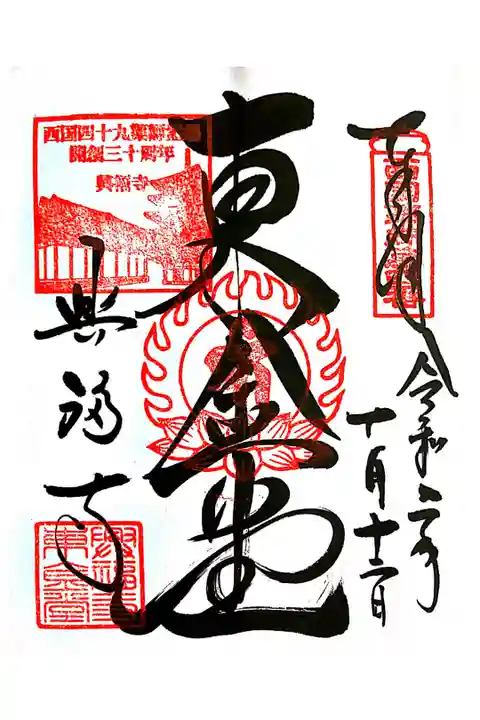 奉拝
令和二年
十月十二日
東金堂
西国四十九薬師霊場
開創三十周年
興福寺
興福寺